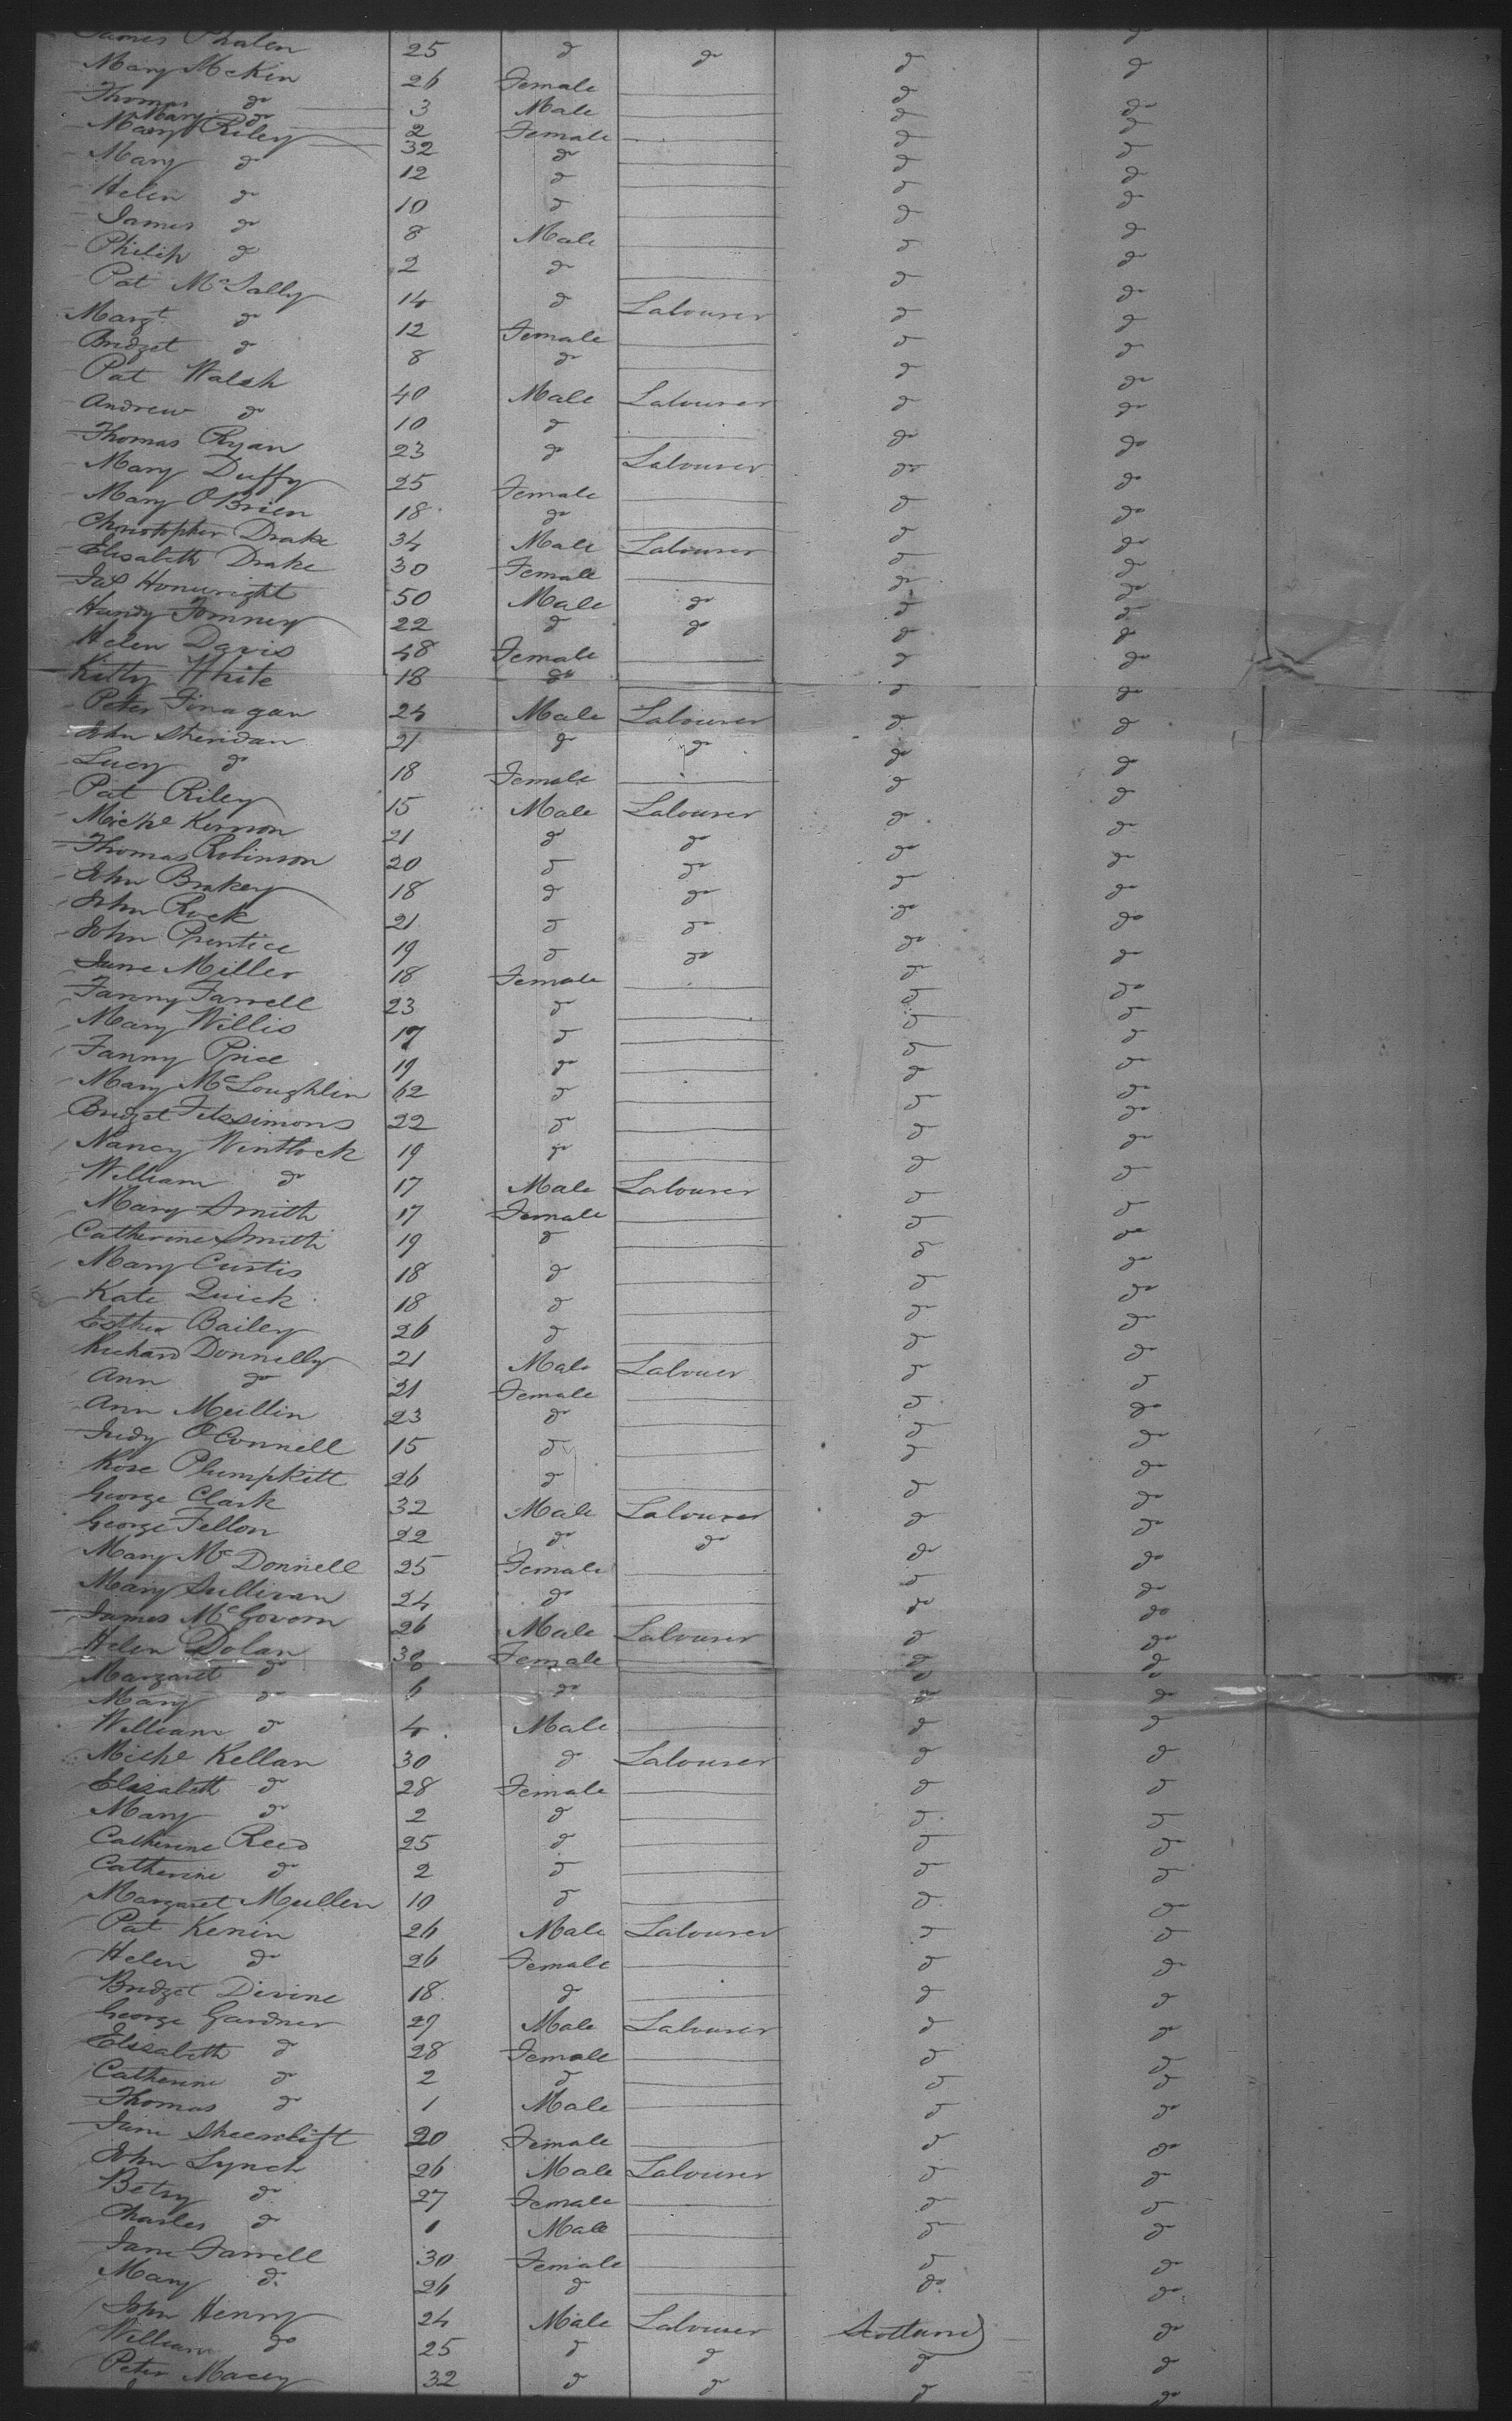 James Phalen 25 do do do do
Mary McKin 26 Female do do
Thomas do 3 Male do do
Mary do 2 Female do do
Mary Riley 32 do do do
Mary do 12 do do do
Helen do 10 do do do
James do 8 Male do do
Philip do 2 do do do
Pat McSally 14 do Labourer do do
Margt do 12 Female do do
Bridget do 8 do do do
Pat Walsh 40 Male Labourer do do
Andrew do 10 do do do
Thomas Ryan 23 do Labourer do do
Mary Duffy 25 Female do do
Mary OBrien 18 do do do
Christopher Drake 34 Male Labourer do do
Elisabeth Drake 30 Female do do
Jas Honwright 50 Male do do do
Handy Tomney 22 do do do do
Helen Davis 48 Female do do
Kitty White 18 do do do
Peter Finagan 24 Male Labourer do do
John Sheridan 21 do do do do
Lucy do 18 Female do do
Pat Riley 15 Male Labourer do do
Michl Kernon 21 do do do do
Thomas Robinson 20 do do do do
John Brakey 18 do do do do
John Rock 21 do do do do
John Prentice 19 do do do do
Jane Miller 18 Female do do
Fanny Farrell 23 do do do
Mary Willis 17 do do do
Fanny Price 19 do do do
Mary McLoughlin 62 do do do
Bridget Fitssimons 22 do do do
Nancy Wintlock 19 do do do
William do 17 Male Labourer do do
Mary Smith 17 Female do do
Catherine Smith 19 do do do
Mary Curtis 18 do do do
Kate Quick 18 do do do
Esther Bailey 26 do do do
Richard Donnelly 21 Male Labouer do do
Ann do 21 Female do do
Ann Mullin 23 do do do
Judy OConnell 15 do do do
Rose Plumpkitt 26 do do do
George Clark 32 Male Labourer do do
George Fellon 22 do do do do
Mary McDonnell 25 Female do do
Mary Sullivan 24 do do do
James McGovern 26 Male Labourer do do
Helen Dolan 30 Female do do
Margaret do 8 do do
Mary do 6 do do do
William do 4 Male do do
Michl Kellan 30 do Labourer do do
Elizabeth do 28 Female do do
Mary do 2 do do do
Catherine Reed 25 do do do
Catherine do 2 do do do
Margaret Mullen 10 do do do
Pat Kenin 26 Male Labourer do do
Helen do 26 Female do do
Bridget Divine 18 do do do
George Gardner 29 Male Labourer do do
Elisabeth do 28 Female do do
Catherine do 2 do do do
Thomas do 1 Male do do
Jane 20 Female do do
John Lynch 26 Male Labourer do do
Betsy do 27 Female do do
Charles do 1 Male do do
Jane Farrell 30 Female do do
Mary do 26 do do do
John Henry 24 Male Labourer Scotland do
William do 25 do do do do
Peter Macey 32 do do do do